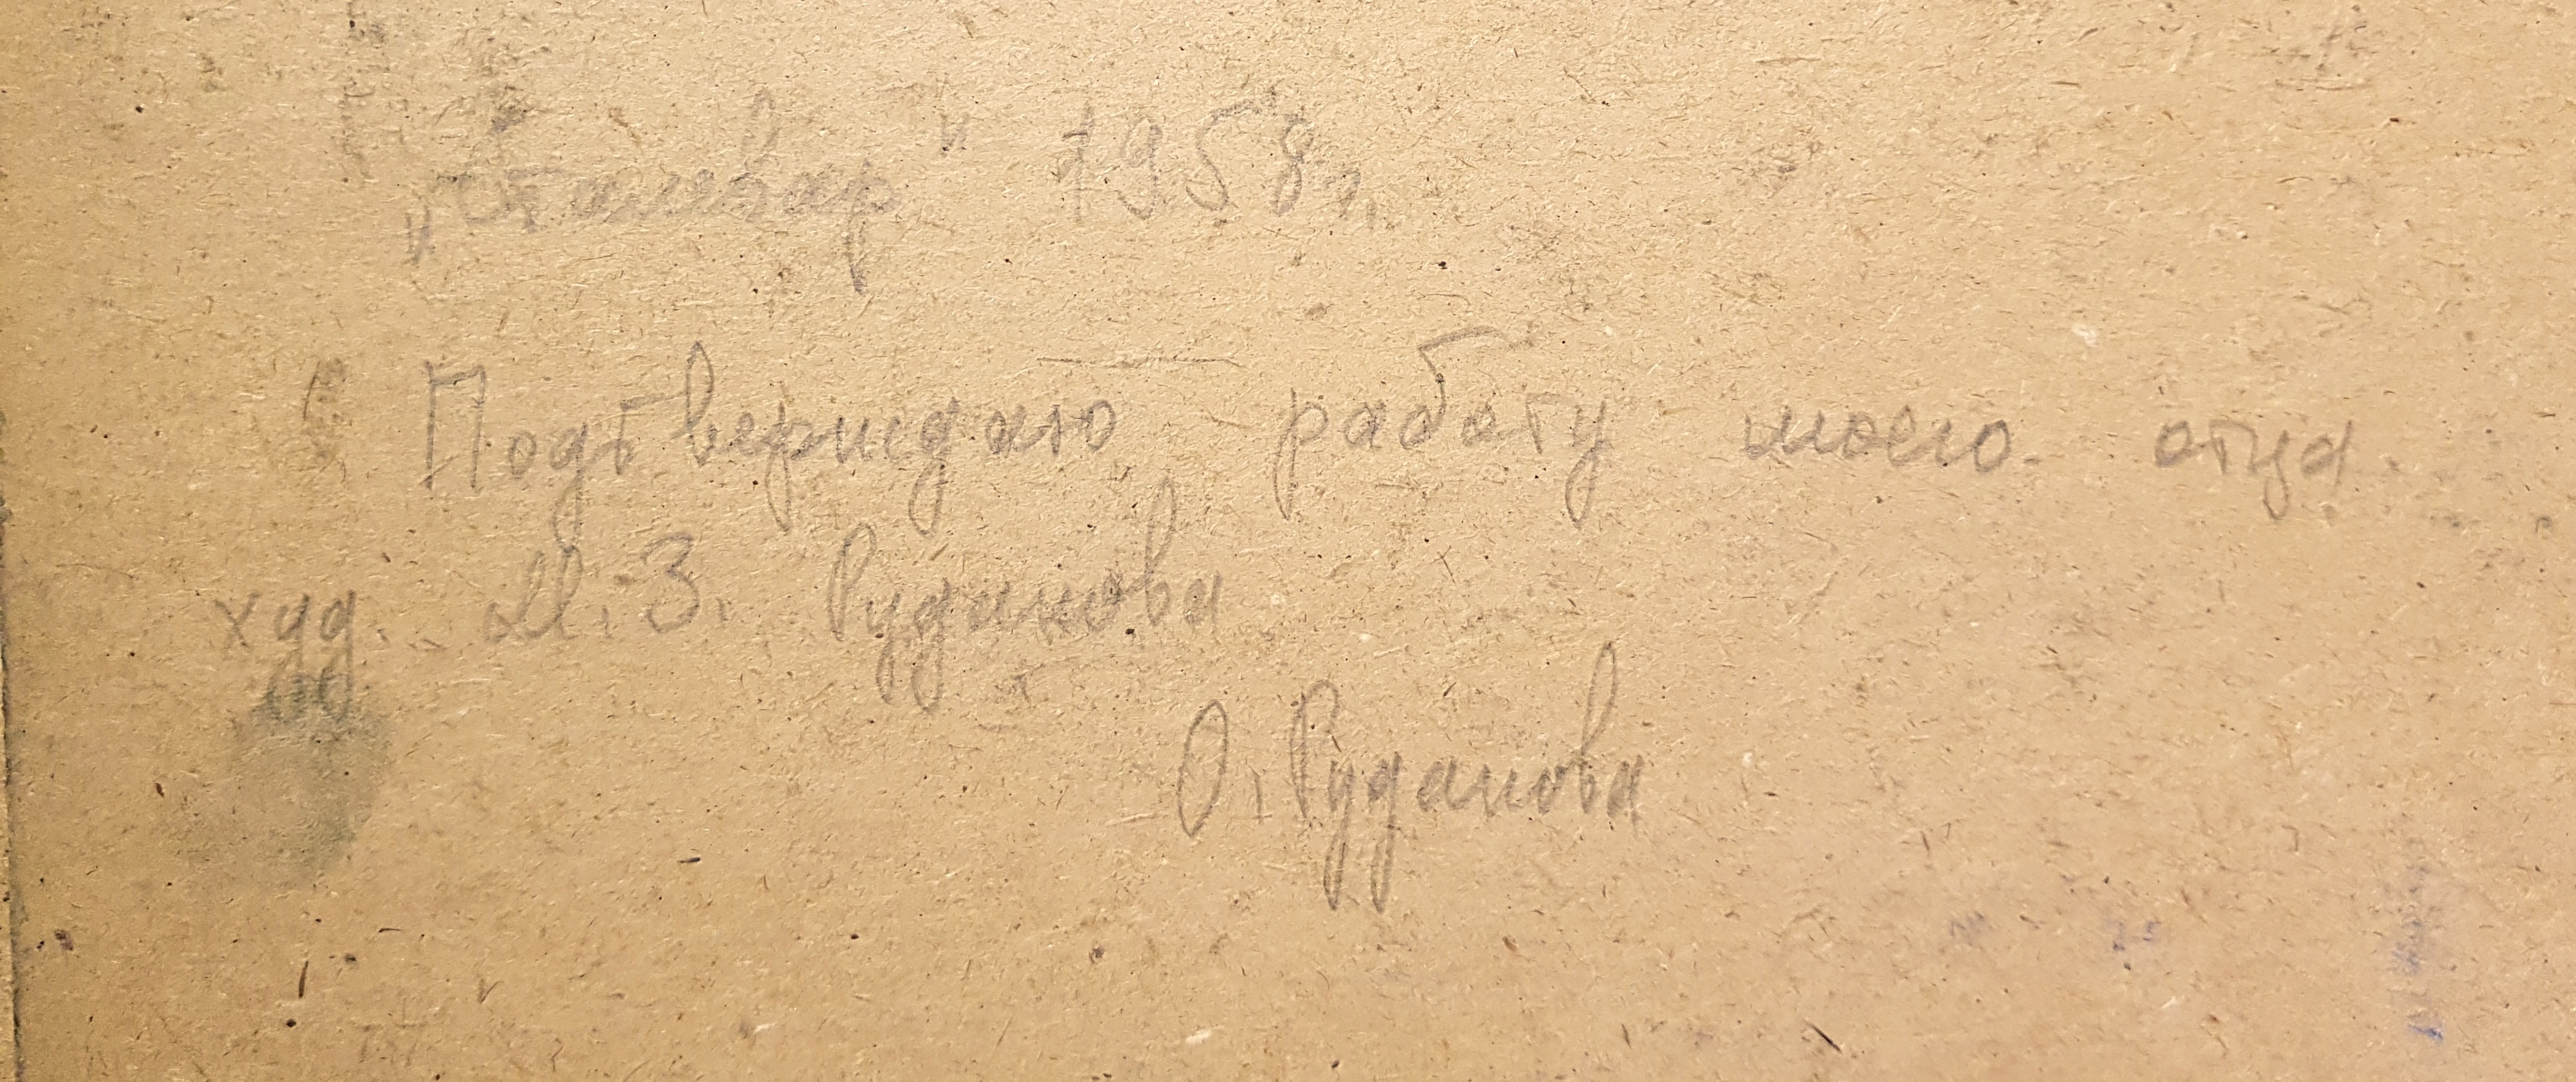 „Сталевар" 1958г.
Подтверждаю работу моего отца.
худ. М.З. Руданова
О. Руданова